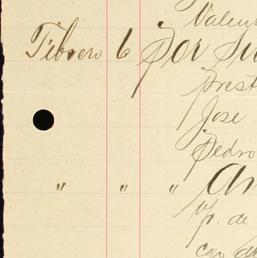 Valen
Febrero 6 Por Su
prest
Jose
Pedro
" " " An
y p. de